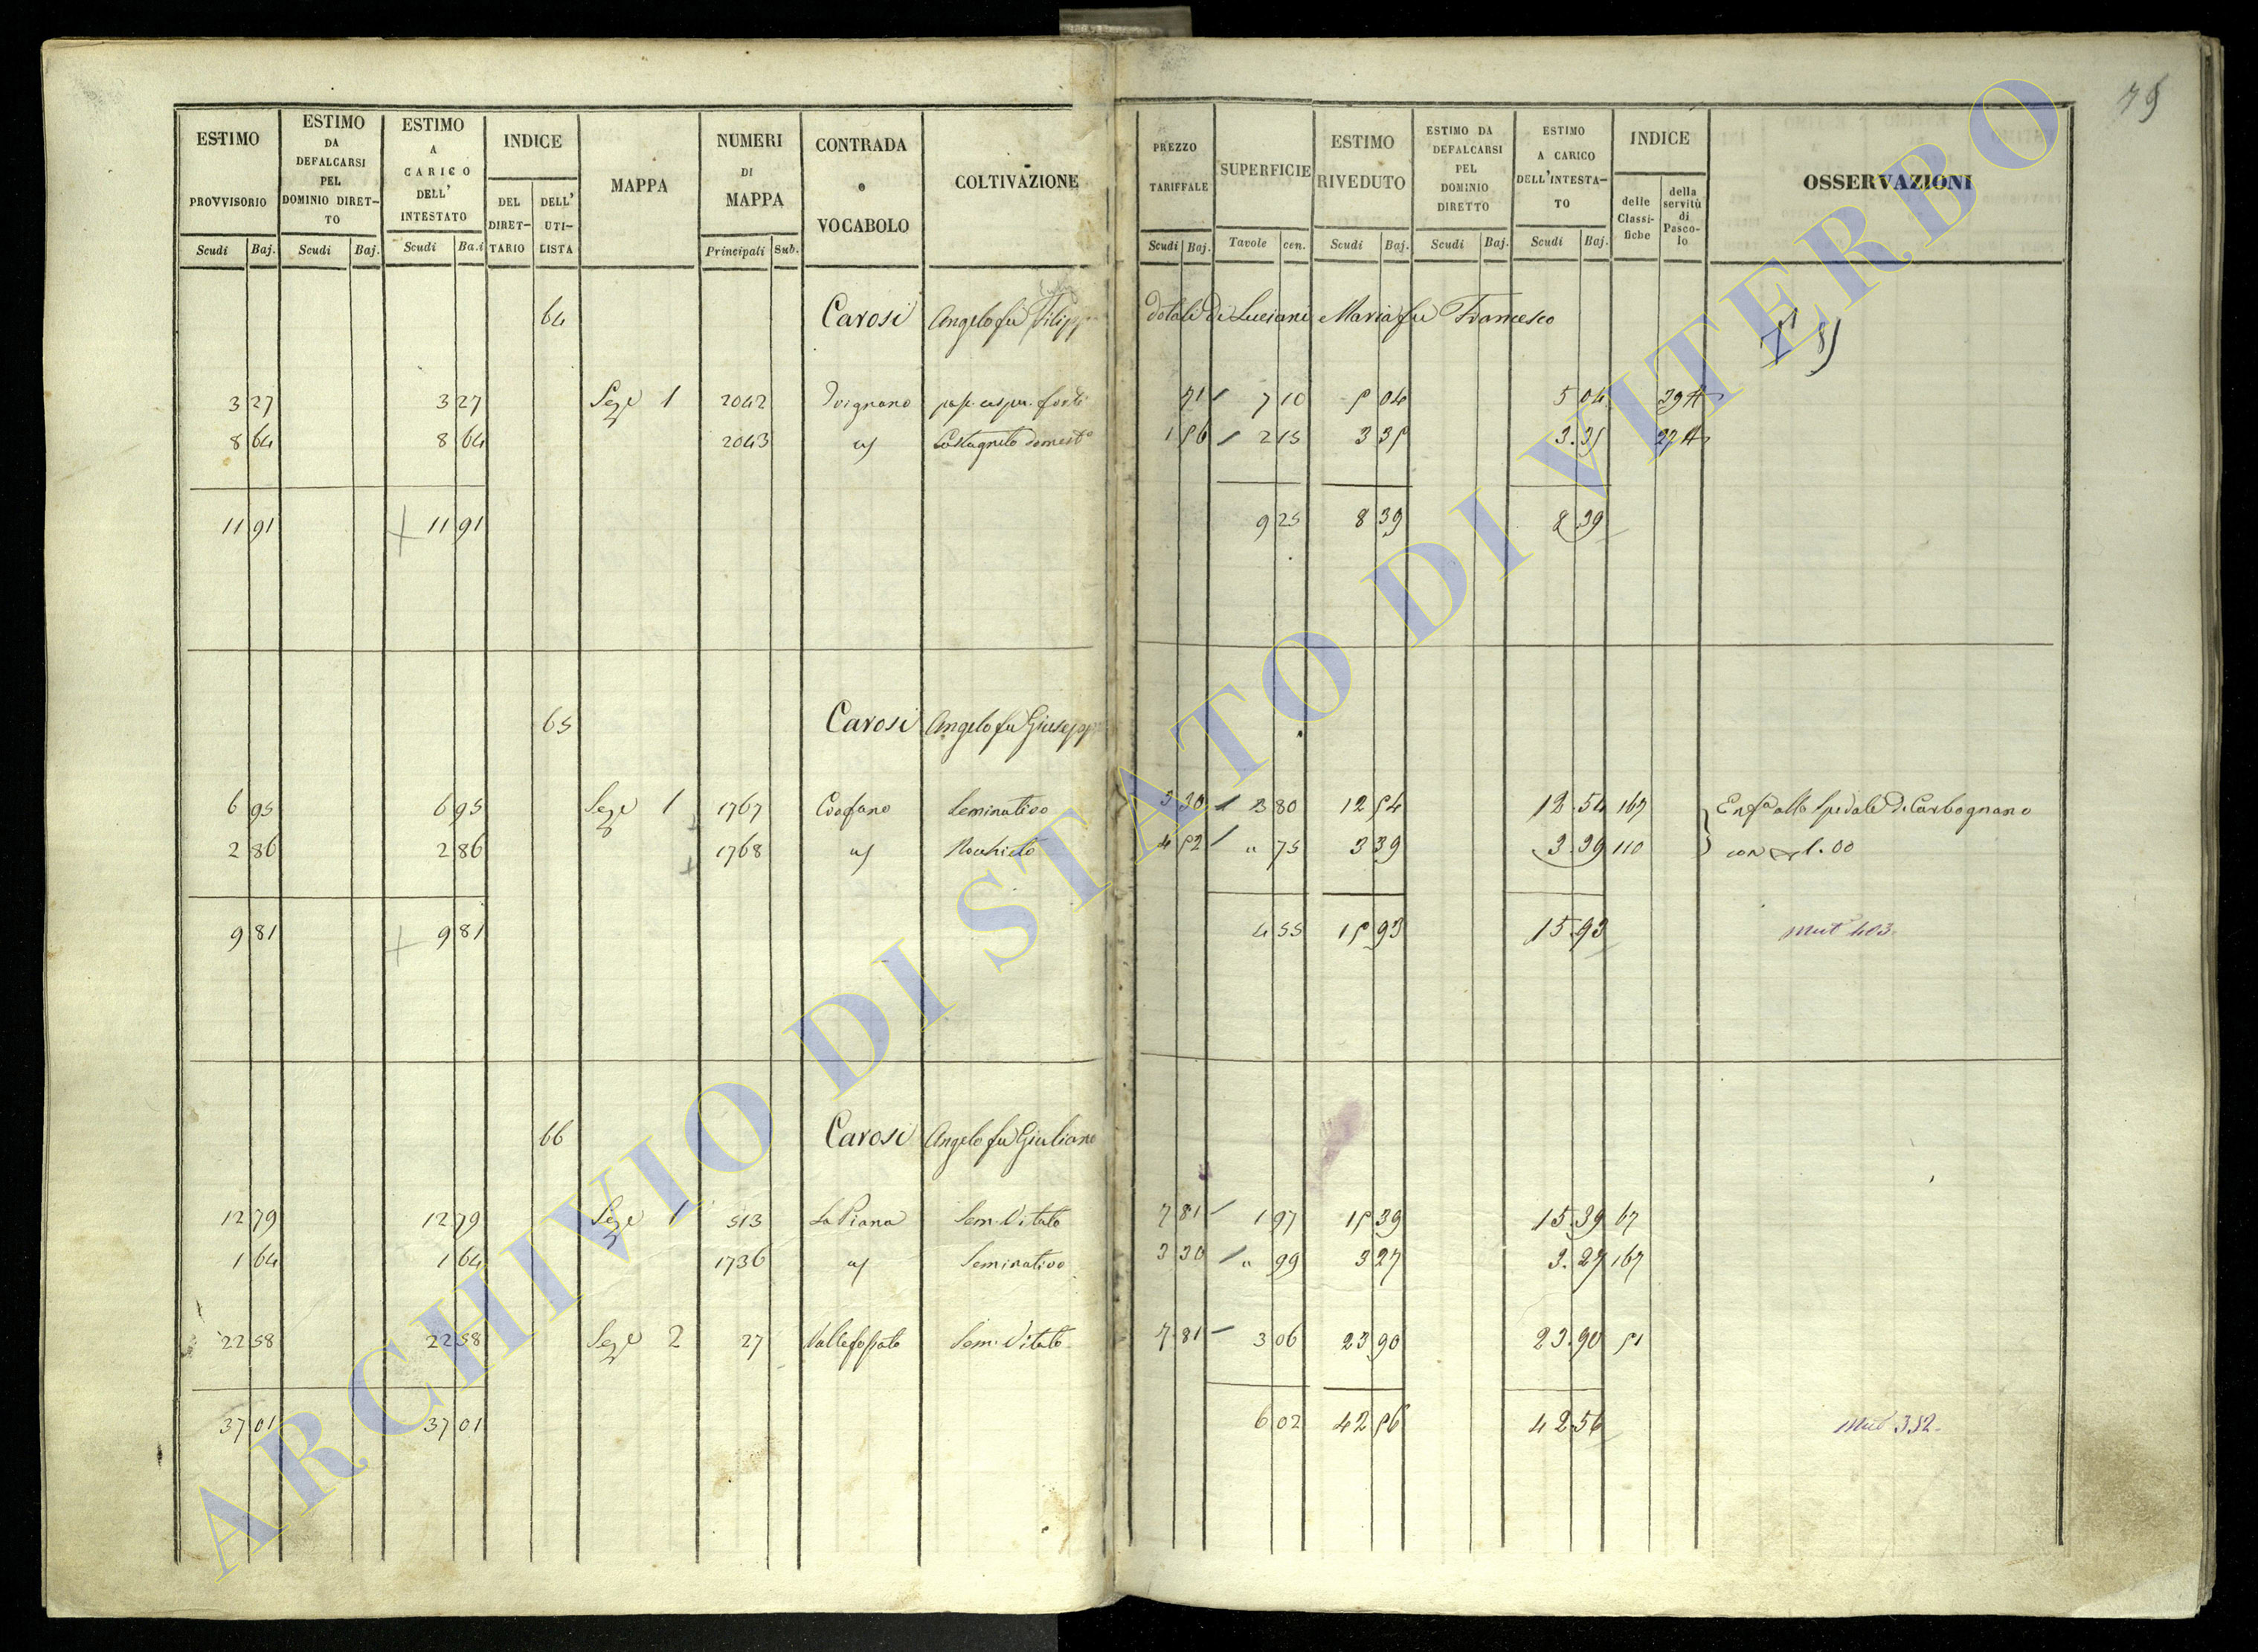 75
ESTIMO PROVVISORIO Scudi Baj.
ESTIMO DA DEFALCARSI PEL DOMINIO DIRETTO Scudi Baj.
ESTIMO A CARICO DELL' INTESTATO Scudi Ba.i
INDICE DEL DIRETTARIO DELL' UTILISTA
MAPPA
NUMERI DI MAPPA Principali Sub.
CONTRADA o VOCABOLO
COLTIVAZIONE
PREZZO TARIFFALE Scudi Baj.
SUPERFICIE Tavole cen.
ESTIMO RIVEDUTO Scudi Baj.
ESTIMO DA DEFALCARSI PEL DOMINIO DIRETTO Scudi Baj.
ESTIMO A CARICO DELL'INTESTATO Scudi Baj.
INDICE delle Classifiche della servitù di Pascolo
OSSERVAZIONI
64 Carosi Angelo fu Filippo dotale di Luciani Maria fu Francesco
3 27 3 27 Seze 1 2042 71 7 10 5 04 5 04 39
8 64 8 64 2043 Castagneto domesto 1 56 2 15 3 35 3.35 22
11 91 11 91 9 25 8 39 8 39
65 Carosi Angelo fu Giuseppe
6 95 6 95 Seze 1 1767 Seminativo 3 30 3 80 12 54 12.54 167 Enfa allo Spedale di Carbognano
2 86 2 86 1768 Nocchieto 4 52 " 75 3 39 3.39 110 con 1.00
9 81 9 81 4 55 15 93 15.93 Mut 403.
66 Carosi Angelo fu Giuliano
12 79 12 79 Seze 1 513 La Piana Sem. Vitato 7 81 1 97 15 39 15.39 67
1 64 1 64 1736 Seminativo 3 30 " 99 3 27 3.27 167
22 58 22 58 Seze 2 27 Sem. Vitato 7.81 3 06 23 90 23.90 51
37 01 37 01 6 02 42 56 42 56 Mut 352.
ARCHIVIO DI STATO DI VITERBO